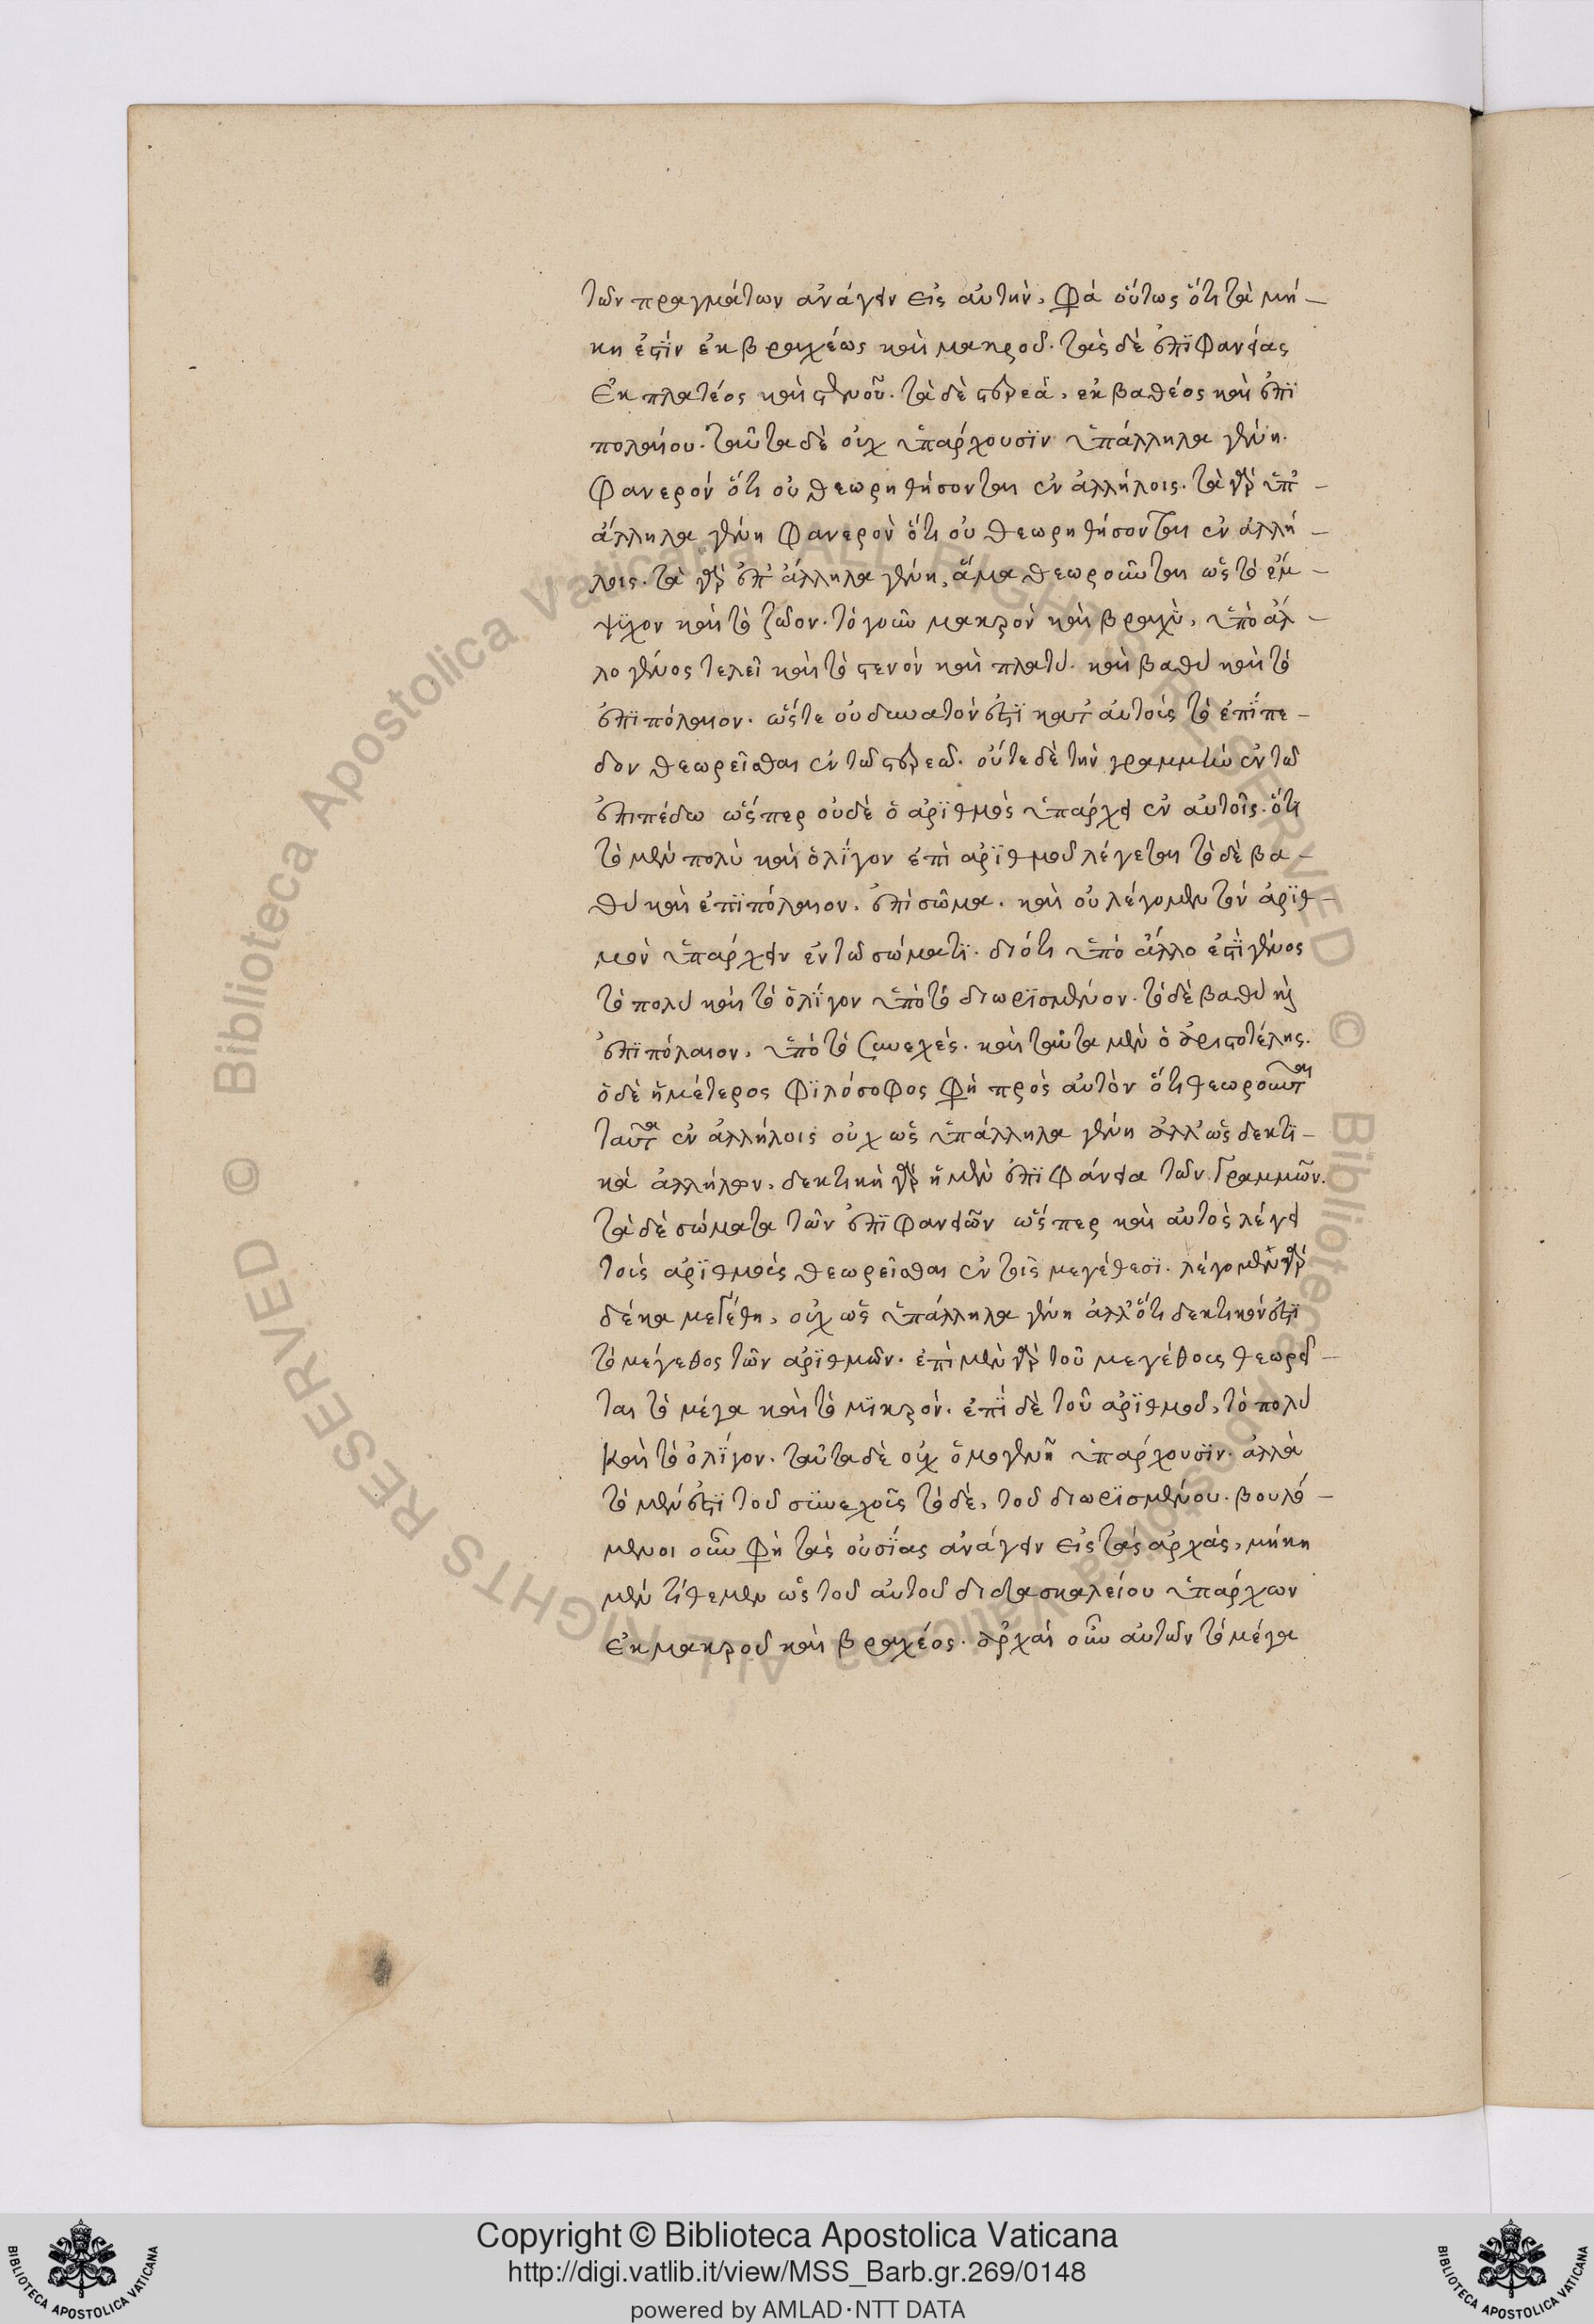 τῶν πραγμάτων ἀνάγειν εἰς αὐτὴν, φασὶ οὕτως ὅτι τὰ μή-
κη ἐστὶν ἐκ βραχέως καὶ μακροῦ. τὰς δὲ ἐπιφανείας
ἐκ πλατέος καὶ στενοῦ. τὰ δὲ στερεὰ, ἐκ βαθέος καὶ ἐπι
πολαίου. ταῦτα δὲ οὐχ ὑπάρχουσϊν ὑπάλληλα γένη.
φανερὸν ὅτι οὐ θεωρηθήσονται ἐν ἀλλήλοις. τὰ γὰρ ὑπ' -
ἄλληλα γένη φανερὸν ὅτι οὐ θεωρηθήσονται ἐν ἀλλή-
λοις. τὰ γὰρ ἐπ' ἄλληλα γένη, ἅμα θεωροῦνται ὡς τὸ ἔμ-
ψϊχον καὶ τὸ ζῶον. τὸ γοῦν μακρὸν καὶ βραχὺ, ὑπὸ ἄλ-
λο γένος τελεῖ καὶ τὸ στενὸν καὶ πλατύ. καὶ βαθὺ καὶ τὸ
ἐπϊπόλαιον. ὥστε οὐ δυνατόν ἐστϊ κατ' αὐτοὺς τὸ ἐπίπε-
δον θεωρεῖσθαι ἐν τῶ στερεῶ. οὔτε δὲ τὴν γραμμὴν ἐν τῶ
ἐπιπέδω ὥσπερ οὐδὲ ὁ ἀρϊθμὸς ὑπάρχει ἐν αὐτοῖς. ὅτι
τὸ μὲν πολὺ καὶ ὀλίγον ἐπὶ ἀρϊθμοῦ λέγεται τὸ δὲ βα-
θὺ καὶ ἐπϊπόλαιον, ἐπὶ σῶμα. καὶ οὐ λέγομεν τὸν ἀρϊθ-
μὸν ὑπάρχειν ἐν τῶ σώματϊ. διότι ὑπὸ ἄλλο ἐστὶ γένος
τὸ πολὺ καὶ τὸ ὀλίγον ὑπὸ τὸ διωρϊσμένον. τὸ δὲ βαθὺ καὶ
ἐπϊπόλαιον, ὑπὸ τὸ συνεχές. καὶ ταῦτα μὲν ὁ ἀριστοτέλης.
ὁ δὲ ἡμέτερος φϊλόσοφος φησὶ πρὸς αὐτὸν ὅτι θεωροῦνται
ταῦτα ἐν ἀλλήλοις οὐχ ὡς ὑπάλληλα γένη ἀλλ' ὡς δεκτι-
κὰ ἀλλήλων, δεκτικὴ γὰρ ἡ μὲν ἐπϊφάνεια τῶν γραμμῶν.
τὰ δὲ σώματα τῶν ἐπϊφανειῶν ὥσπερ καὶ αὐτὸς λέγει
τοὺς ἀρϊθμοὺς θεωρεῖσθαι ἐν τοῖς μεγέθεσϊ. λέγομεν γὰρ
δέκα μεγέθη, οὐχ ὡς ὑπάλληλα γένη ἀλλ' ὅτι δεκτικόν ἐστϊ
τὸ μέγεθος τῶν ἀρϊθμῶν. ἐπὶ μὲν γὰρ τοῦ μεγέθους θεωρεῖ-
ται τὸ μέγα καὶ τὸ μϊκρόν. ἐπὶ δὲ τοῦ ἀρϊθμοῦ, τὸ πολὺ
καὶ τὸ ὀλίγον. ταῦτα δὲ οὐχ ὁμογενῆ ὑπάρχουσϊν. ἀλλὰ
τὸ μέν ἐστϊ τοῦ σϋνεχοῦς τὸ δὲ, τοῦ διωρϊσμένου. βουλό-
μενοι οὖν φησὶ τὰς οὐσίας ἀνάγειν εἰς τὰς ἀρχὰς, μήκη
μὲν τίθεμεν ὡς τοῦ αὐτοῦ διδασκαλείου ὑπάρχων
ἐκ μακροῦ καὶ βραχέος. ἀρχαὶ οὖν αὐτῶν τὸ μέγα
Copyright © Biblioteca Apostolica Vaticana
http://digi.vatlib.it/view/MSS_Barb.gr.269/0148
powered by AMLAD·NTT DATA
BIBLIOTECA APOSTOLICA VATICANA
BIBLIOTECA APOSTOLICA VATICANA
© Biblioteca Apostolica Vaticana ALL RIGHTS RESERVED © Biblioteca Apostolica Vaticana ALL RIGHTS RESERVED